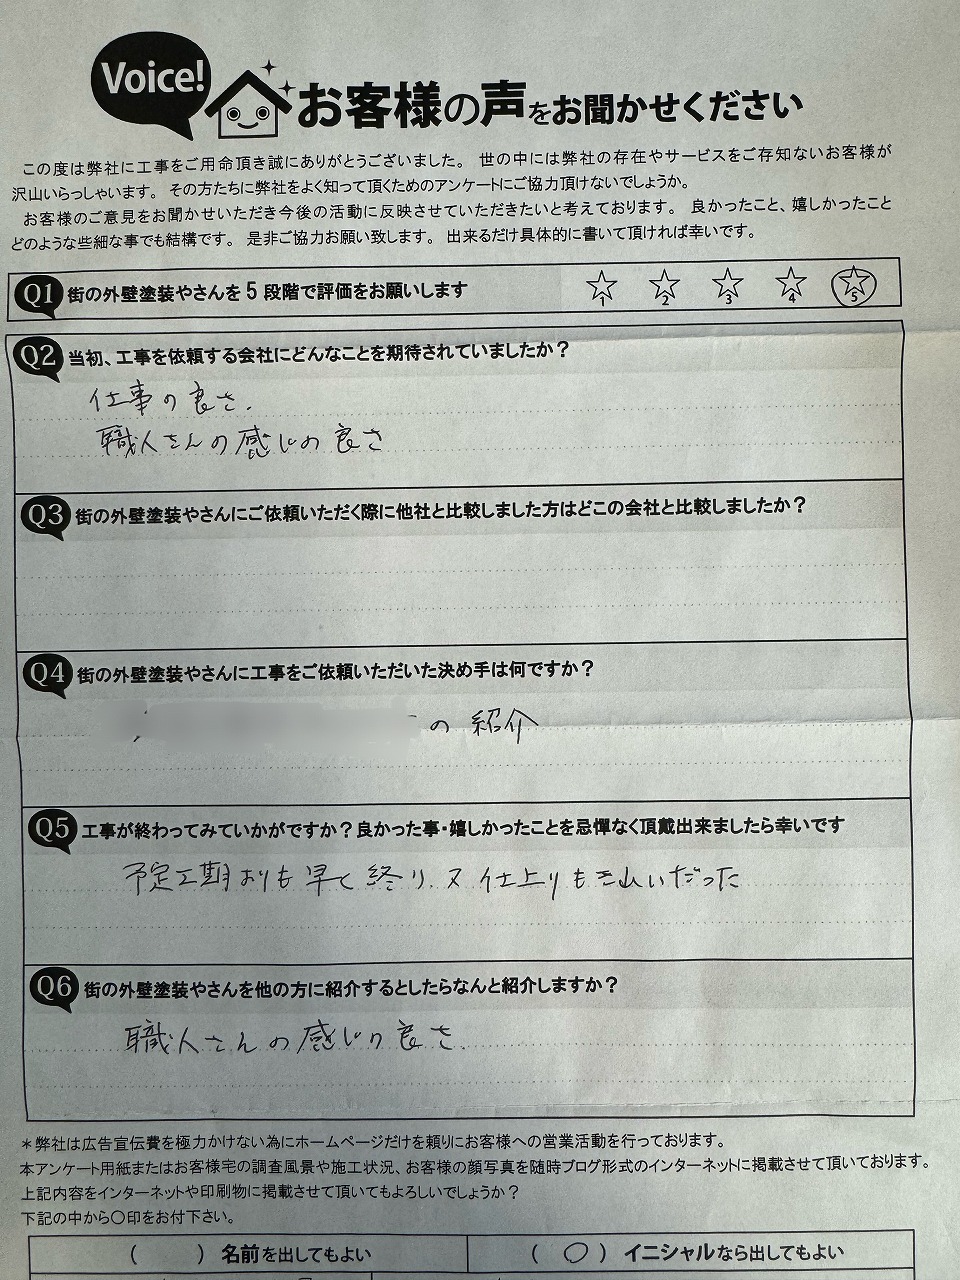 Voice!
お客様の声をお聞かせください
この度は弊社に工事をご用命頂き誠にありがとうございました。 世の中には弊社の存在やサービスをご存知ないお客様が
沢山いらっしゃいます。 その方たちに弊社をよく知って頂くためのアンケートにご協力頂けないでしょうか。
お客様のご意見をお聞かせいただき今後の活動に反映させていただきたいと考えております。 良かったこと、嬉しかったこと
どのような些細な事でも結構です。 是非ご協力お願い致します。 出来るだけ具体的に書いて頂ければ幸いです。
Q1 街の外壁塗装やさんを5段階で評価をお願いします ☆1 ☆2 ☆3 ☆4 ☆5
Q2 当初、工事を依頼する会社にどんなことを期待されていましたか？
仕事の良さ.
職人さんの感じの良さ
Q3 街の外壁塗装やさんにご依頼いただく際に他社と比較しました方はどこの会社と比較しましたか？
Q4 街の外壁塗装やさんに工事をご依頼いただいた決め手は何ですか？
の紹介
Q5 工事が終わってみていかがですか？良かった事・嬉しかったことを忌憚なく頂戴出来ましたら幸いです
予定工期よりも早く終り.又仕上りもきれいだった
Q6 街の外壁塗装やさんを他の方に紹介するとしたらなんと紹介しますか？
職人さんの感じの良さ.
＊弊社は広告宣伝費を極力かけない為にホームページだけを頼りにお客様への営業活動を行っております。
本アンケート用紙またはお客様宅の調査風景や施工状況、お客様の顔写真を随時ブログ形式のインターネットに掲載させて頂いております。
上記内容をインターネットや印刷物に掲載させて頂いてもよろしいでしょうか？
下記の中から〇印をお付下さい。
（ ）名前を出してもよい （ ○ ）イニシャルなら出してもよい